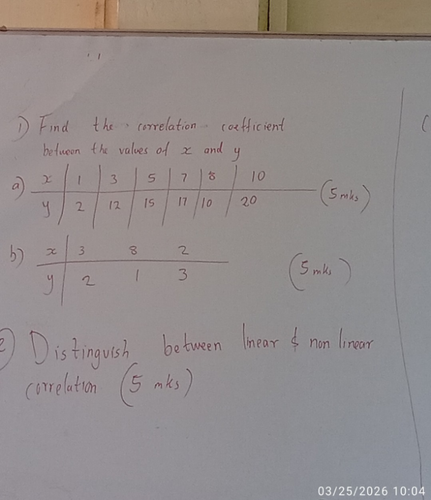 1) Find the correlation coefficient
between the values of x and y
a) x 1 3 5 7 8 10
y 2 12 15 17 10 20 (5 mks)
b) x 3 8 2
y 2 1 3 (5 mks)
2) Distinguish between linear & non linear
correlation (5 mks)
03/25/2026 10:04